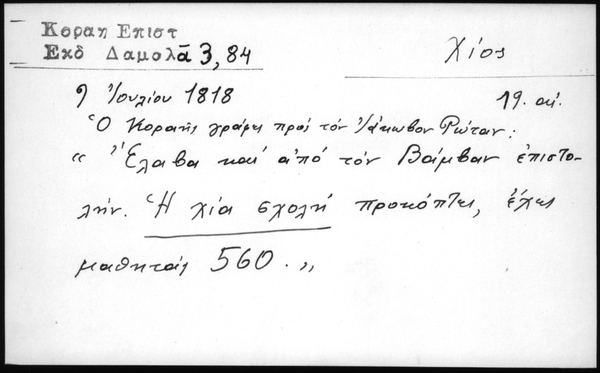 Κοραη Επιστ
Εκδ Δαμαλᾶ 3, 84
Χίος
9 Ἰουλίου 1818
19. αἰ.
Ὁ Κοραῆς γράφει πρὸς τὸν Ἰάκωβον Ρώταν:
“ Ἔλαβα καὶ ἀπό τὸν Βάμβαν ἐπιστο-
λήν. Ἡ χία σχολή προκόπτει, ἔχει
μαθητάς 560. „